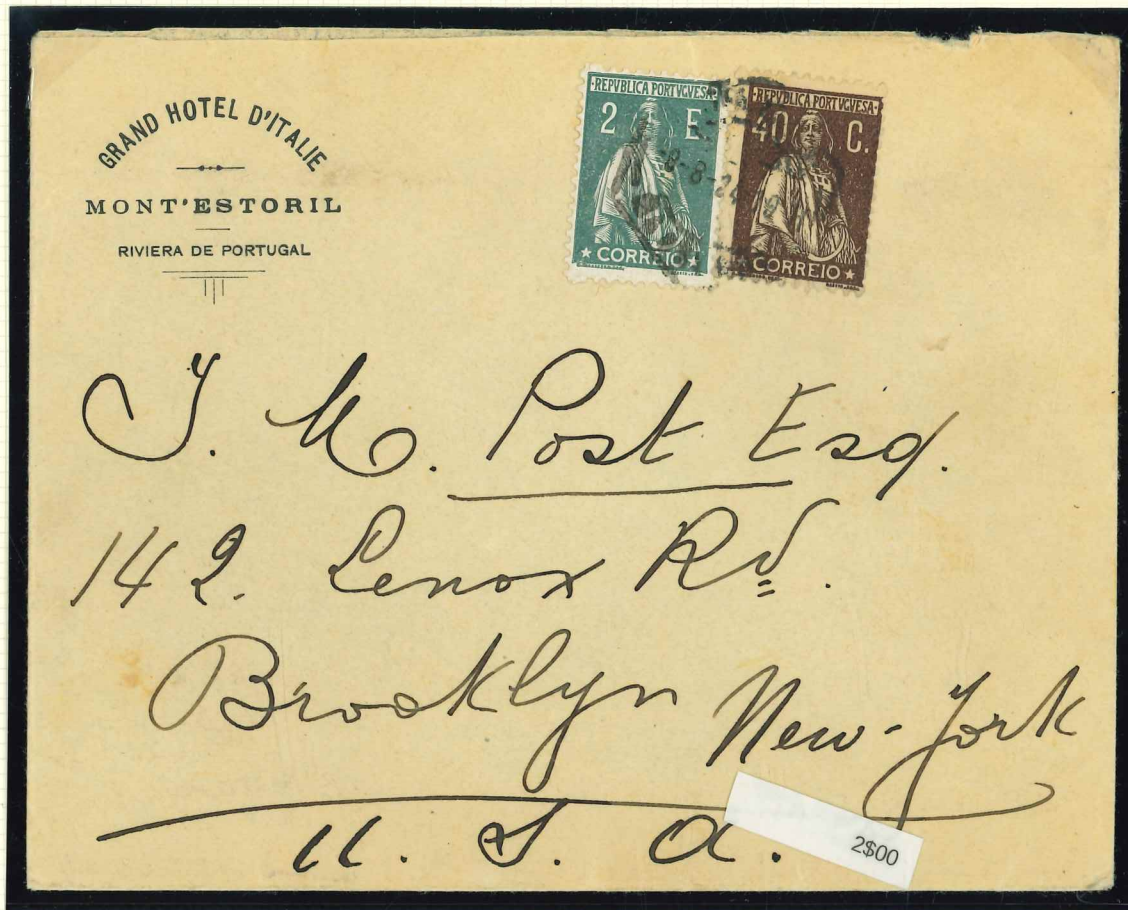 GRAND HOTEL D'ITALIE
MONT'ESTORIL
RIVIERA DE PORTUGAL
REPVBLICA PORTVGVESA
2 E.
CORREIO
REPVBLICA PORTVGVESA
40 C.
CORREIO
8-8-24
J. M. Post Esq.
142. Lenox Rd.
Brooklyn New-York
U. S. A.
2$00